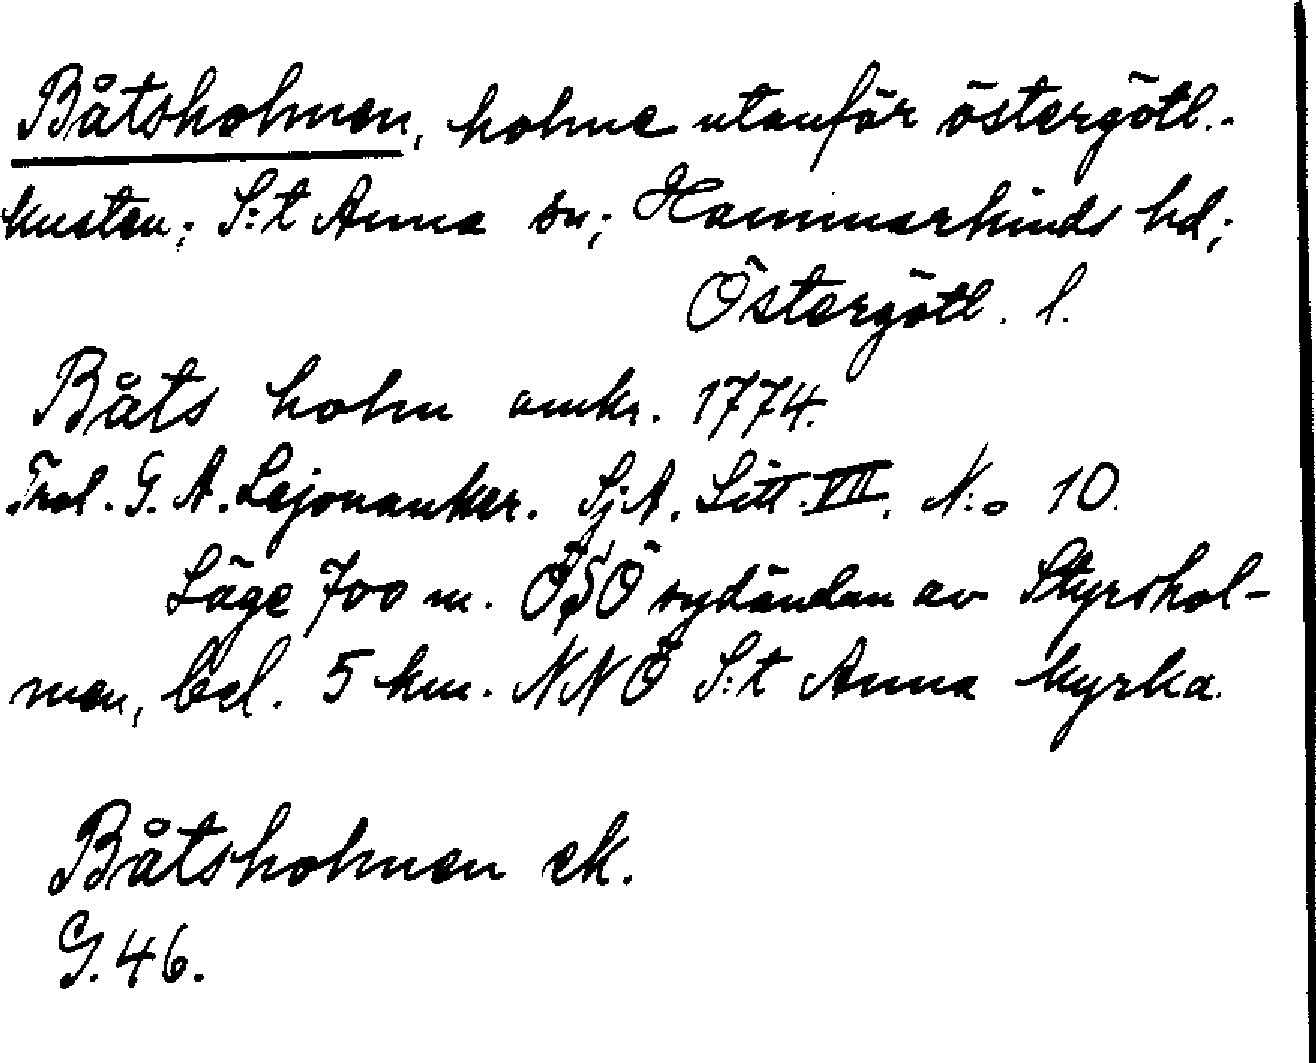 Båtsholmen, holme utanför östergötl.-
kusten; S:t Anna sn; Hammarkinds hd;
Östergötl. l.
Båts holm omkr. 1774.
Trol. G. A. Lejonanker. SjA. Litt. VIII. N:o 10.
Läge 700 m. OSO sydändan av Styrshol-
men, bel. 5 km. NNO S:t Anna kyrka.
Båtsholmen ek.
G. 46.